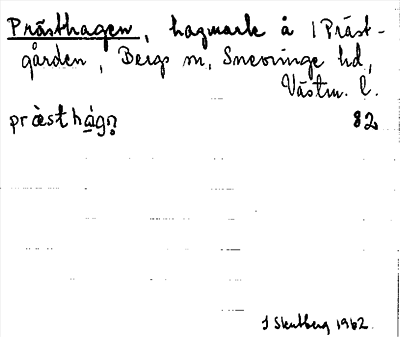 Prästhagen, hagmark å 1 Präst-
gården, Bergs sn, Snevringe hd,
Västm. l.
præsthágn 82
J Skutberg 1962.